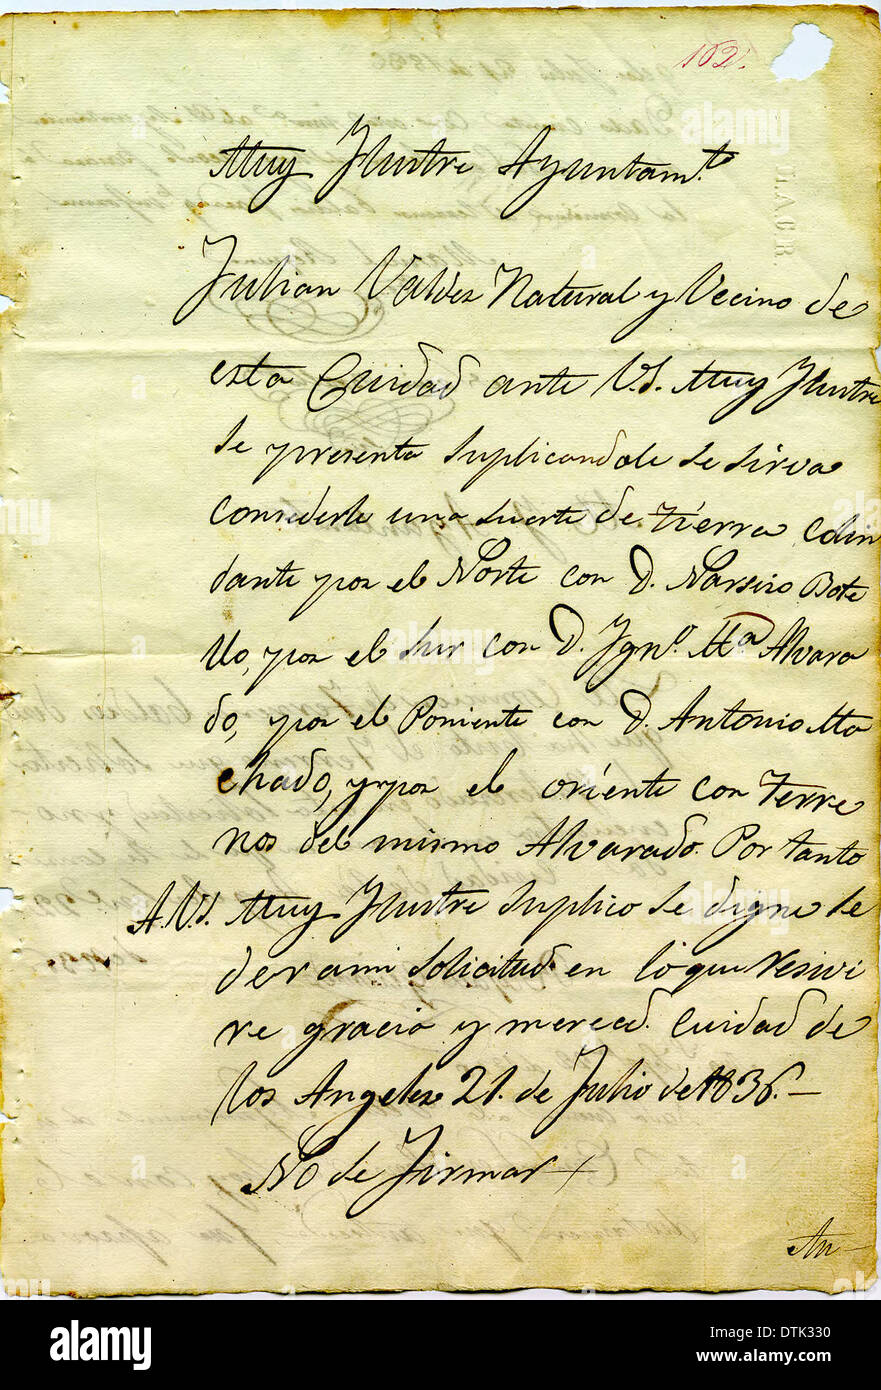 102.
Muy Ilustre Ayuntamto
Julian Valdez Natural y Vecino de
esta Cuidad ante V.S. Muy Ilustre
se presenta suplicandole se sirva
consederle una suerte de tierra colin
dante por el Norte con D. Narsiso Bote
llo, por el sur con D. Ygno. Ma Alvara
do, y por el Poniente con D. Antonio Ma
chado, y por el oriente con terre
nos del mismo Alvarado. Por tanto
A.V.S. Muy Ilustre suplico se digne de
der a mi solicitud en lo que resivi
re gracia y merced. Cuidad de
los Angeles 21. de Julio de 1836.—
No de Firmar +
L.A.C.R.
alamy
alamy
Image ID: DTK330
www.alamy.com